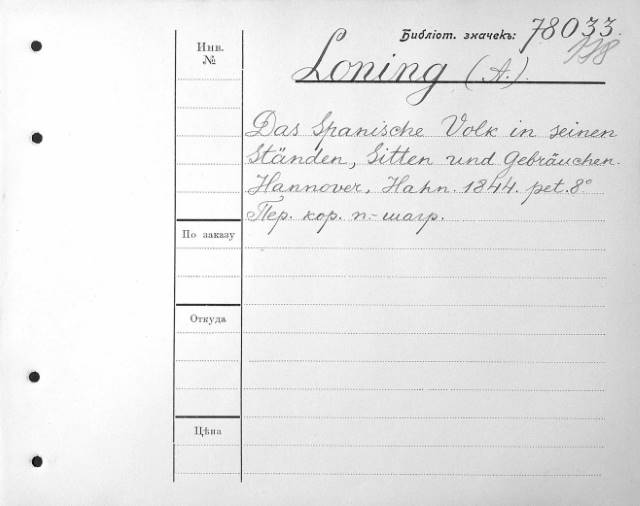 Библіот. значекъ: 78033.
118
Инв.
№
Loning (A.)
Das Spanische Volk in seinen
Ständen, Sitten und Gebräuchen.
Hannover, Hahn. 1844. pet. 8°
Пер. кор. п.-шагр.
По заказу
Откуда
Цѣна